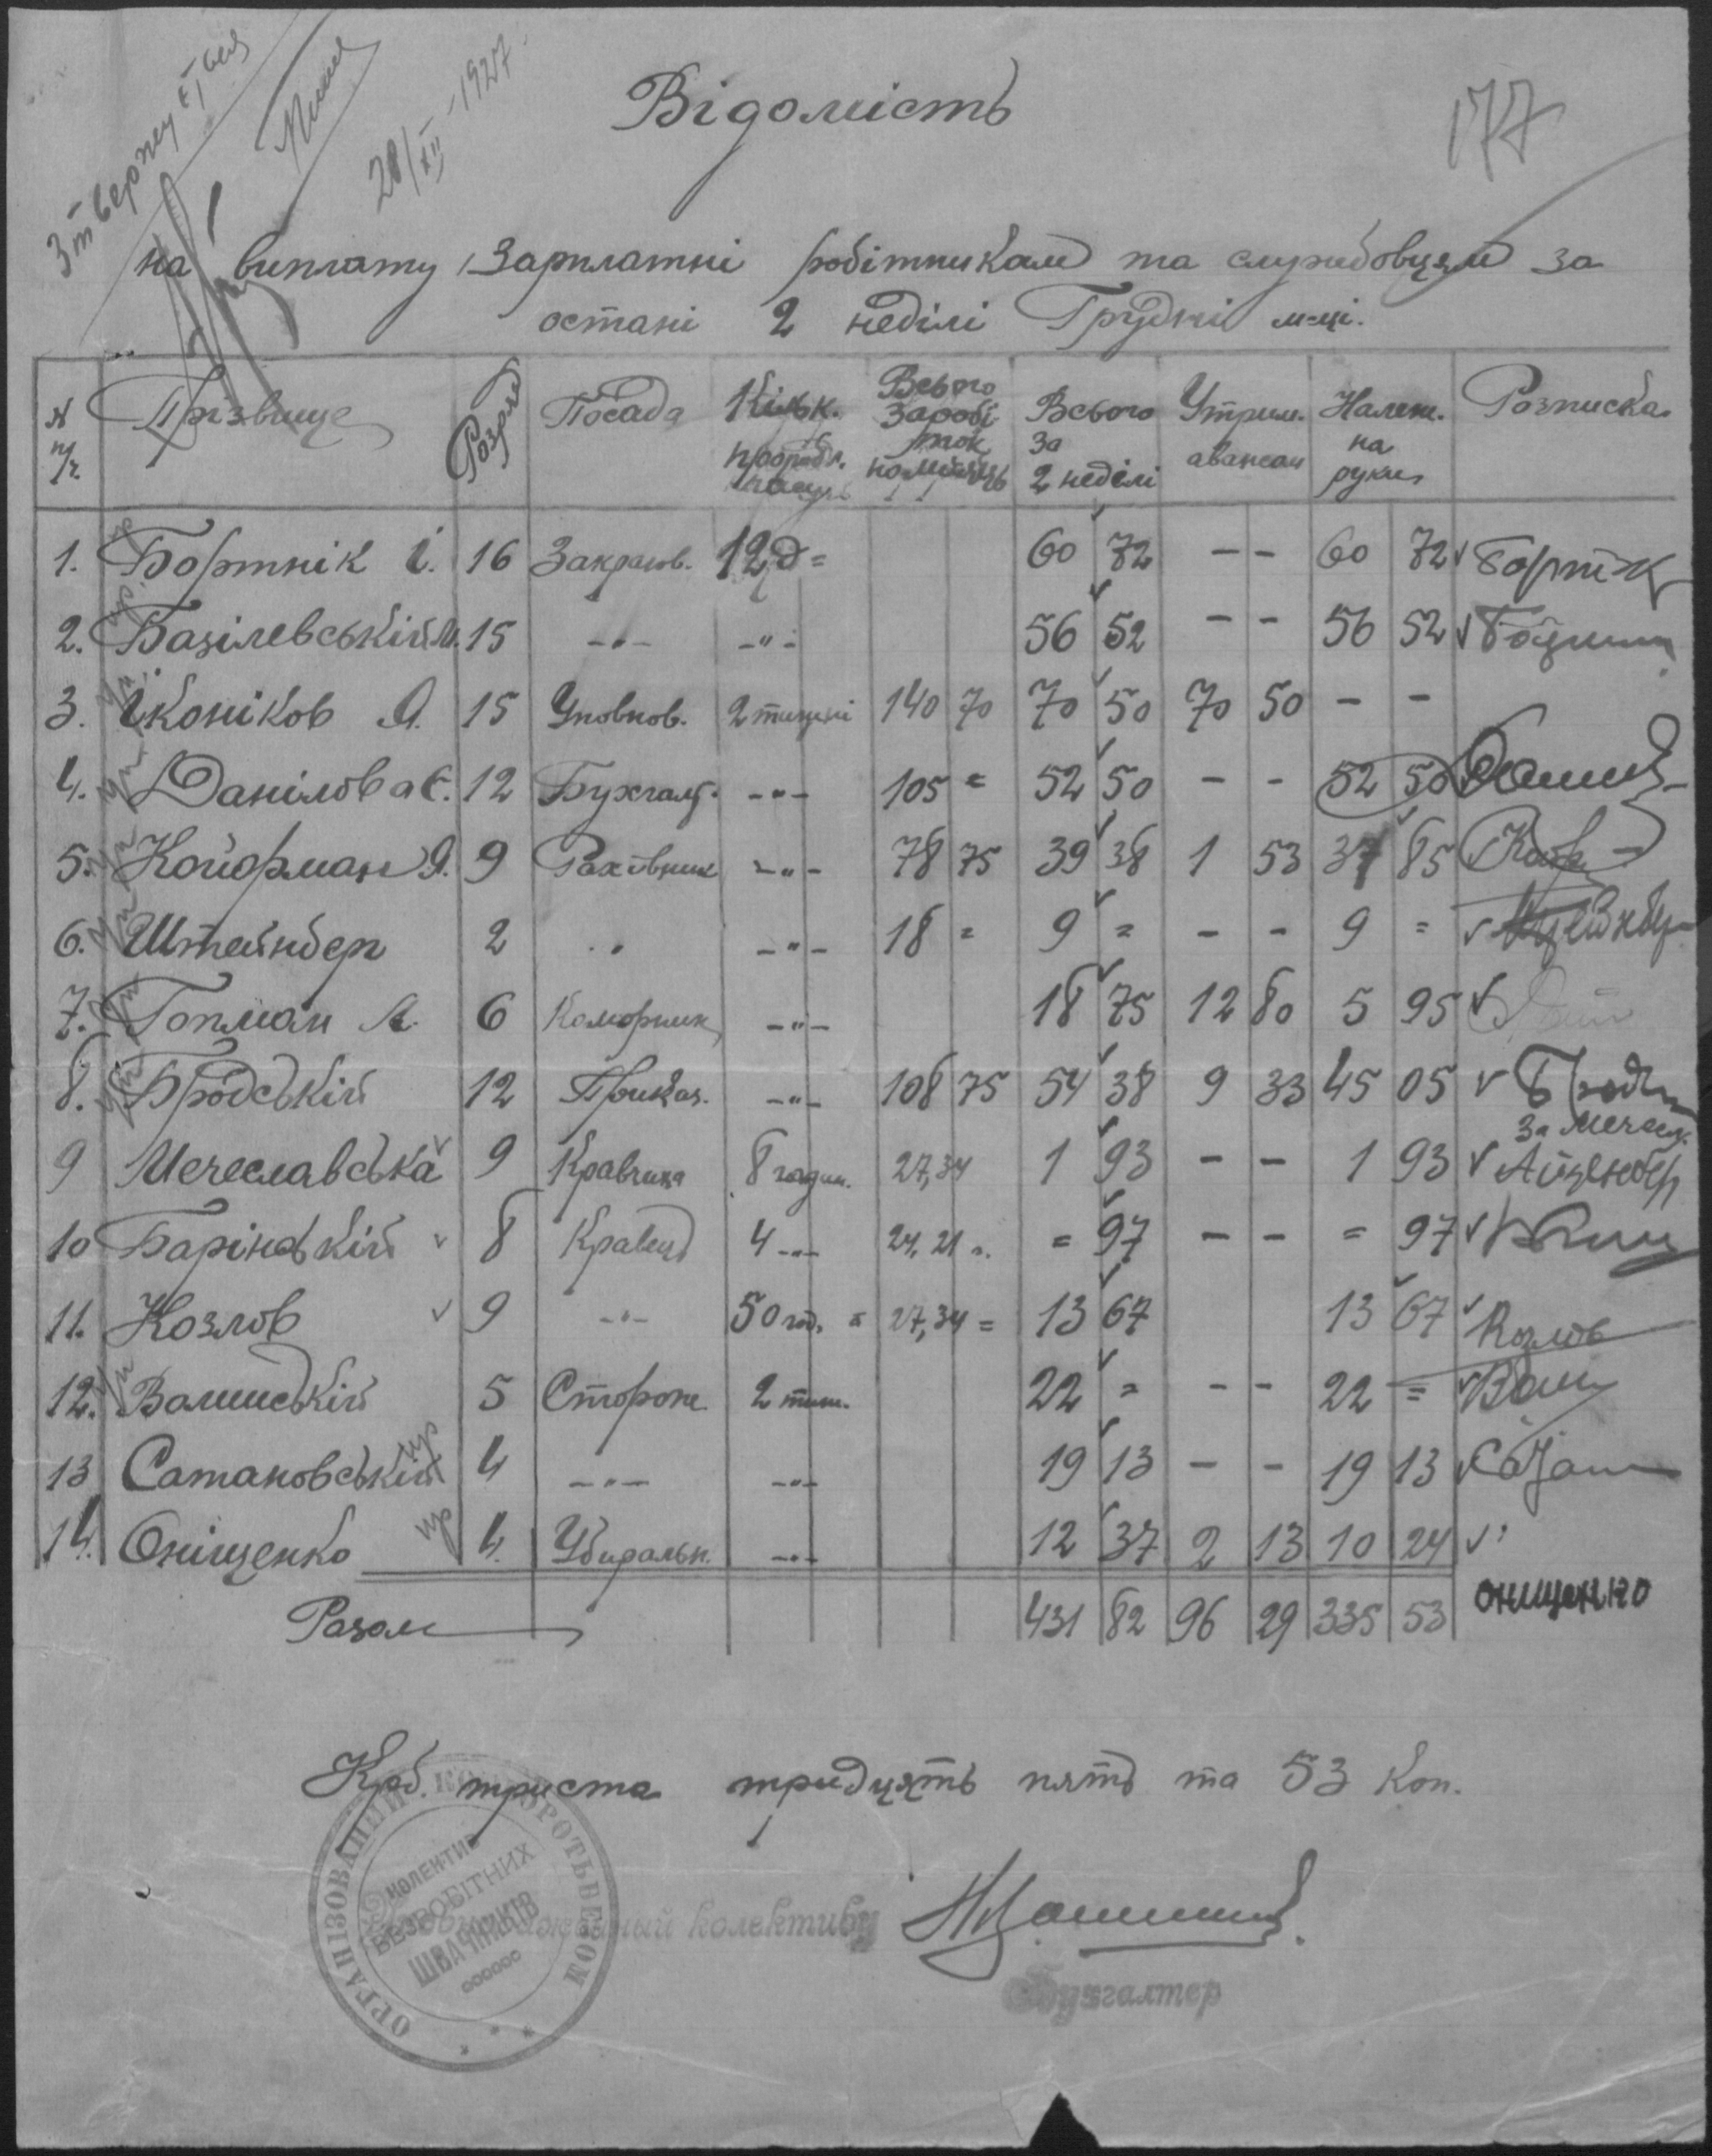 Зтвержую
28/XII-1927
177
Відомість
на виплату зарплатні робітникам та службовцям за
остані 2 неділі Грудні м-ці.
№ п/ч Прізвище Розряд Посада Кільк. проробл. часу Всього заробіток на місяць Всього за 2 неділі Утрим. авансом Належ. на руки Розписка
1. Бортнік І. 16 Закрыв. 12 д = 60 72 - - 60 72 Бортнік
2. Базілевський М. 15 -"- -"- 56 52 - - 56 52
3. Іконіков Я. 15 Уповнов. 2 тижні 140 70 70 50 70 50 - -
4. Данілова Є. 12 Бухгалт. -"- 105 = 52 50 - - 52 50
5. Койфман Я. 9 Рахівник -"- 78 75 39 38 1 53 37 85
6. Штейнберг 2 " -"- 18 = 9 = - - 9 =
7. Гопман А. 6 Коморник -"- 18 75 12 80 5 95
8. Бродській 12 Приказ. -"- 108 75 54 38 9 33 45 05
9 Мечеславська 9 Кравчиха 8 годин. 27,34 1 93 - - 1 93 За Мечесл. Айзенбер
10 Барінській 8 Кравець 4 -"- 24,21 = 97 - - = 97
11. Козлов 9 -"- 50 год. = 27,34 = 13 67 13 67 Козлов
12. Валинській 5 Сторож 2 тиж. 22 = - - 22 =
13 Сатановській 4 -"- -"- 19 13 - - 19 13
14. Оніщенко 4. Убиральн. -"- 12 37 2 13 10 24
онищенко
Разом 431 82 96 29 335 53
Крб. триста тридцять пять та 53 коп.
ОРГАНІЗОВАНИЙ КОМБОРОТЬБЕЗОМ
КОЛЕКТИВ
БЕЗРОБІТНИХ
ШВАЧНИКІВ
колективу
Бухгалтер